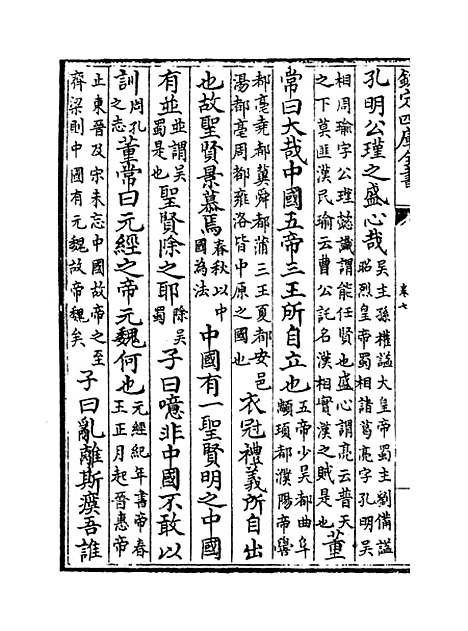 欽定四庫全書
卷七
孔明公瑾之盛心哉吴主孫權諡大皇帝蜀主劉備諡昭烈皇帝蜀相諸葛亮字孔明吴
相周瑜字公理懿識謂能任賢也盛心謂亮云普天之下莫匪漢民瑜云曹公託名漢相實漢之賊是也董
常曰大哉中國五帝三王所自立也五帝少吴都曲阜顓頊都濮陽帝嚳
都亳堯都冀舜都蒲三王夏都安邑湯都亳周都雍洛皆中原之國也衣冠禮義所自出
也故聖賢景慕焉春秋以中國為法中國有一聖賢明之中國
有並並謂吴蜀是也聖賢除之耶除吴蜀子曰噫非中國不敢以
訓問孔之志董常曰元經之帝元魏何也元經紀年書帝春王正月起晉惠帝
止東晉及宋未忘中國故帝之至齊梁則中國有元魏故帝魏矣子曰亂離斯瘼吾誰